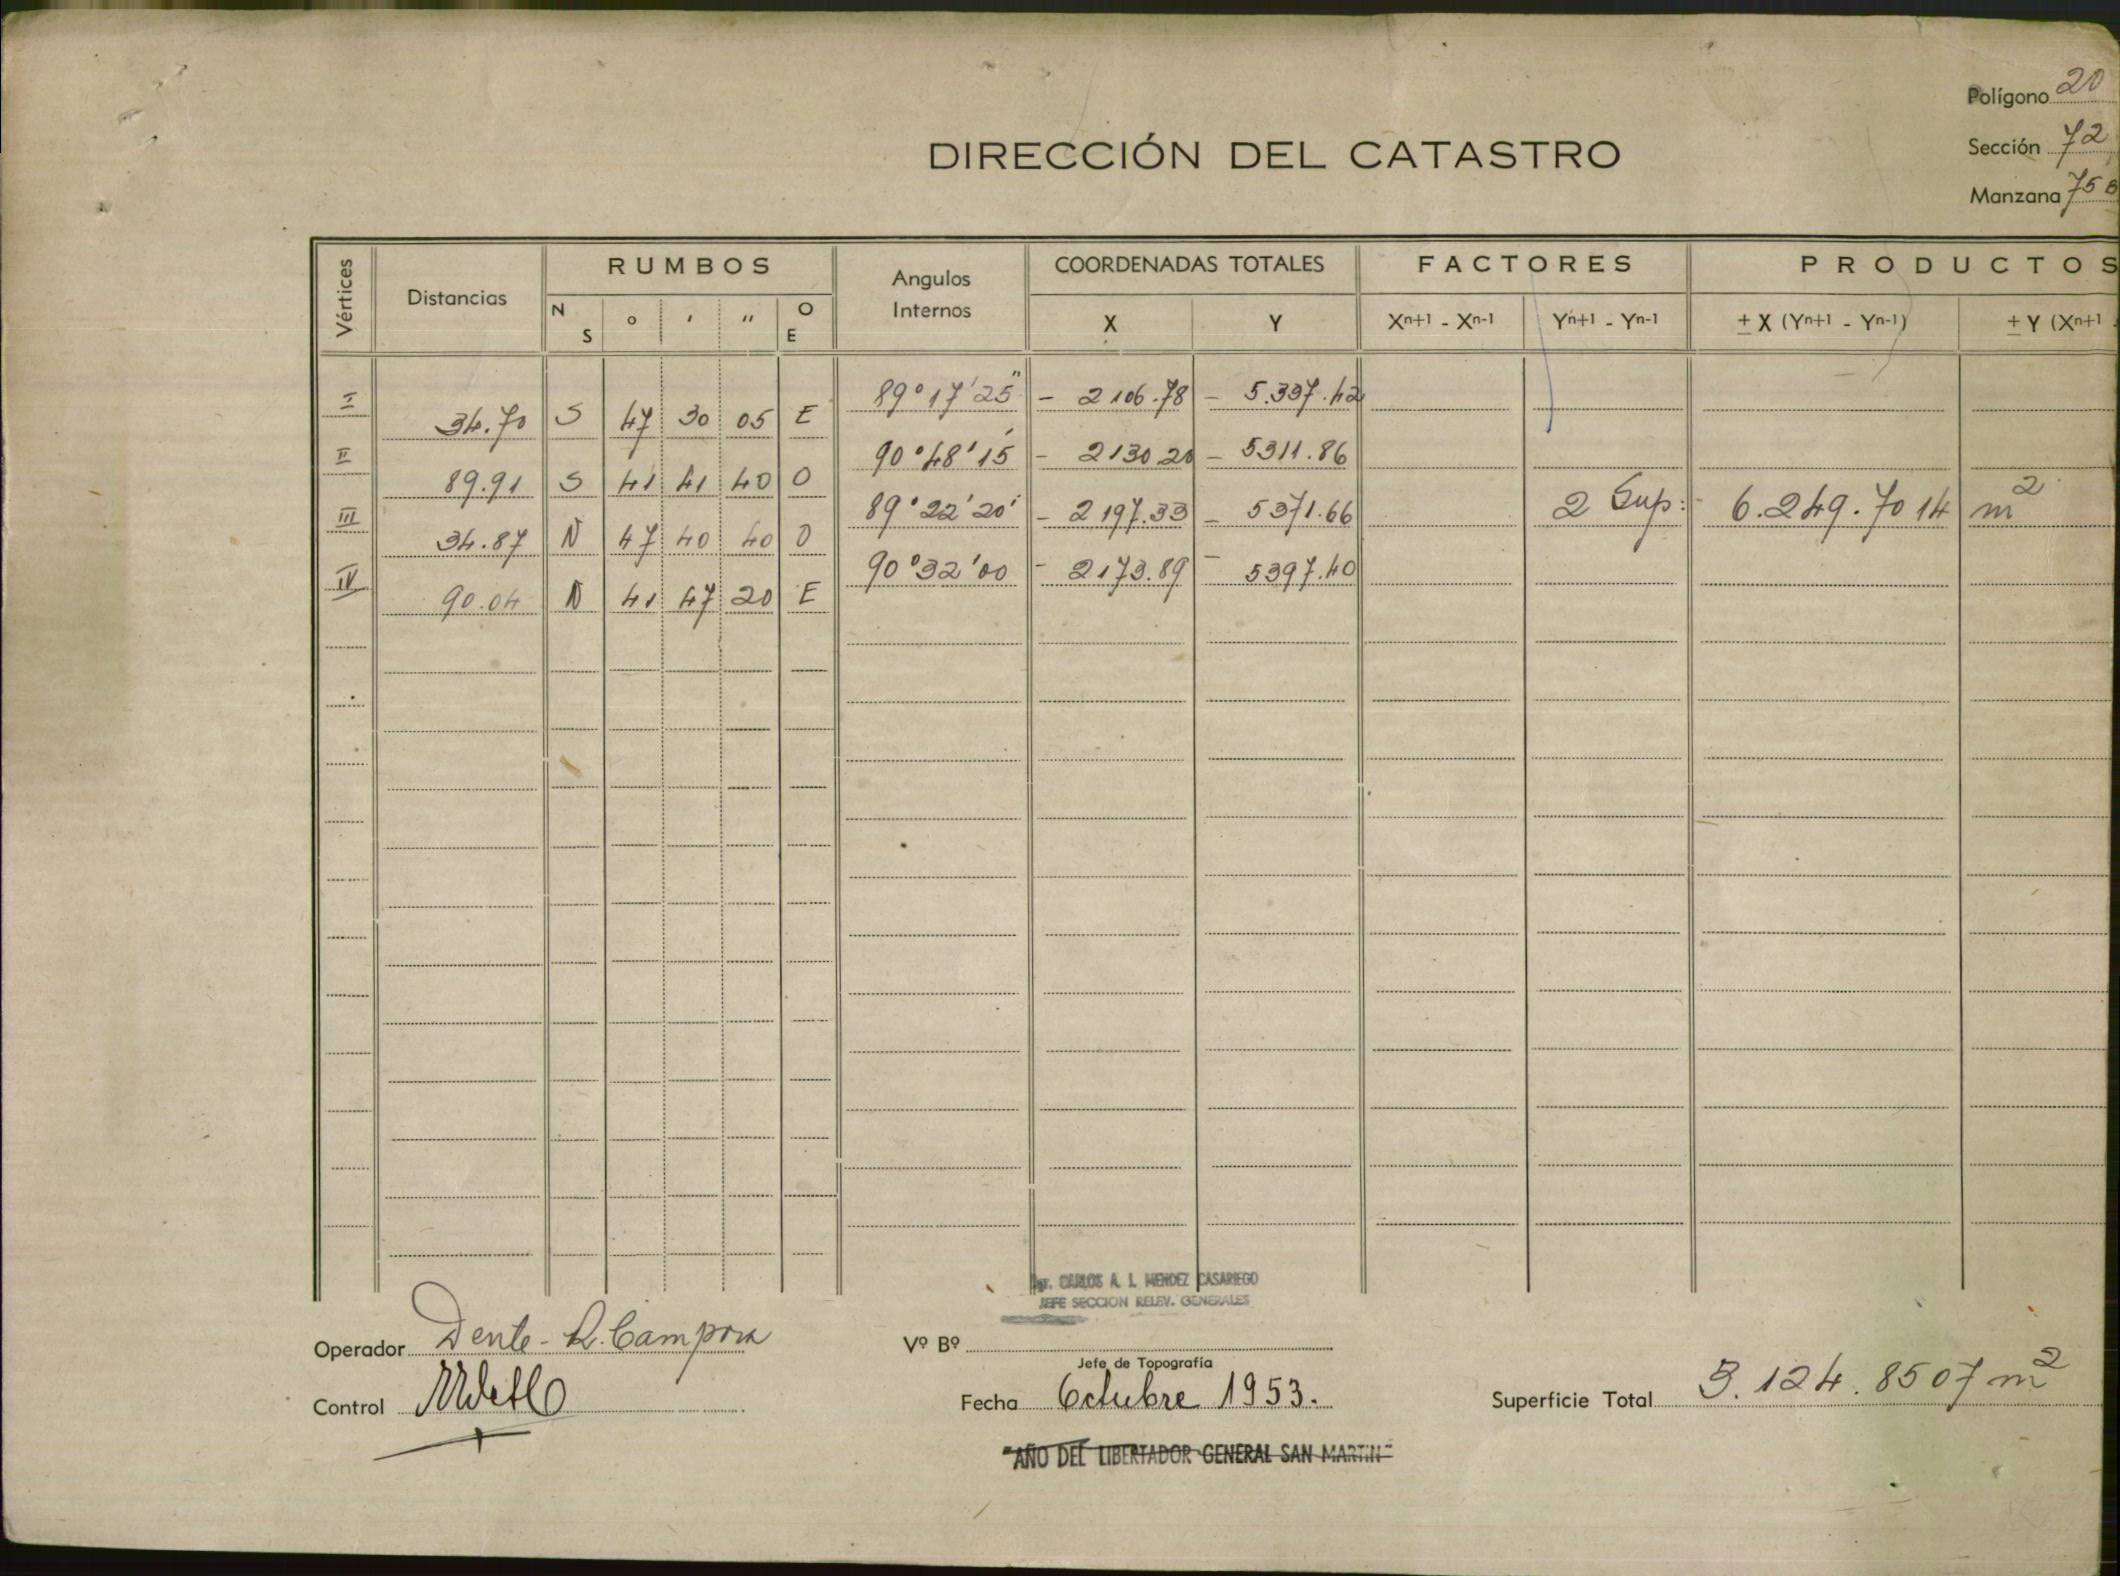 Polígono 20
DIRECCIÓN DEL CATASTRO
Sección 72
Manzana 75 B
Vértices Distancias RUMBOS Angulos Internos COORDENADAS TOTALES FACTORES PRODUCTOS
N S ° ' '' O E X Y Xn+1 - Xn-1 Yn+1 - Yn-1 ± X (Yn+1 - Yn-1) ± Y (Xn+1 -
I 89°17'25" - 2106.78 - 5.337.42
34.70 S 47 30 05 E
II 90°48'15 - 2130 20 - 5311.86
89.91 S 41 41 40 O
III 89°22'20' - 2197.33 - 5371.66 2 Sup: 6.249.7014 m2
34.87 N 47 40 40 O
IV 90°32'00 - 2173.89 - 5397.40
90.04 N 41 47 20 E
CARLOS A. I. MENDEZ CASARIEGO
JEFE SECCION RELEV. GENERALES
Operador Dente - R. Campora Vº Bº
Jefe de Topografía
Control Fecha Octubre 1953. Superficie Total 3.124.8507 m2
"AÑO DEL LIBERTADOR GENERAL SAN MARTIN"